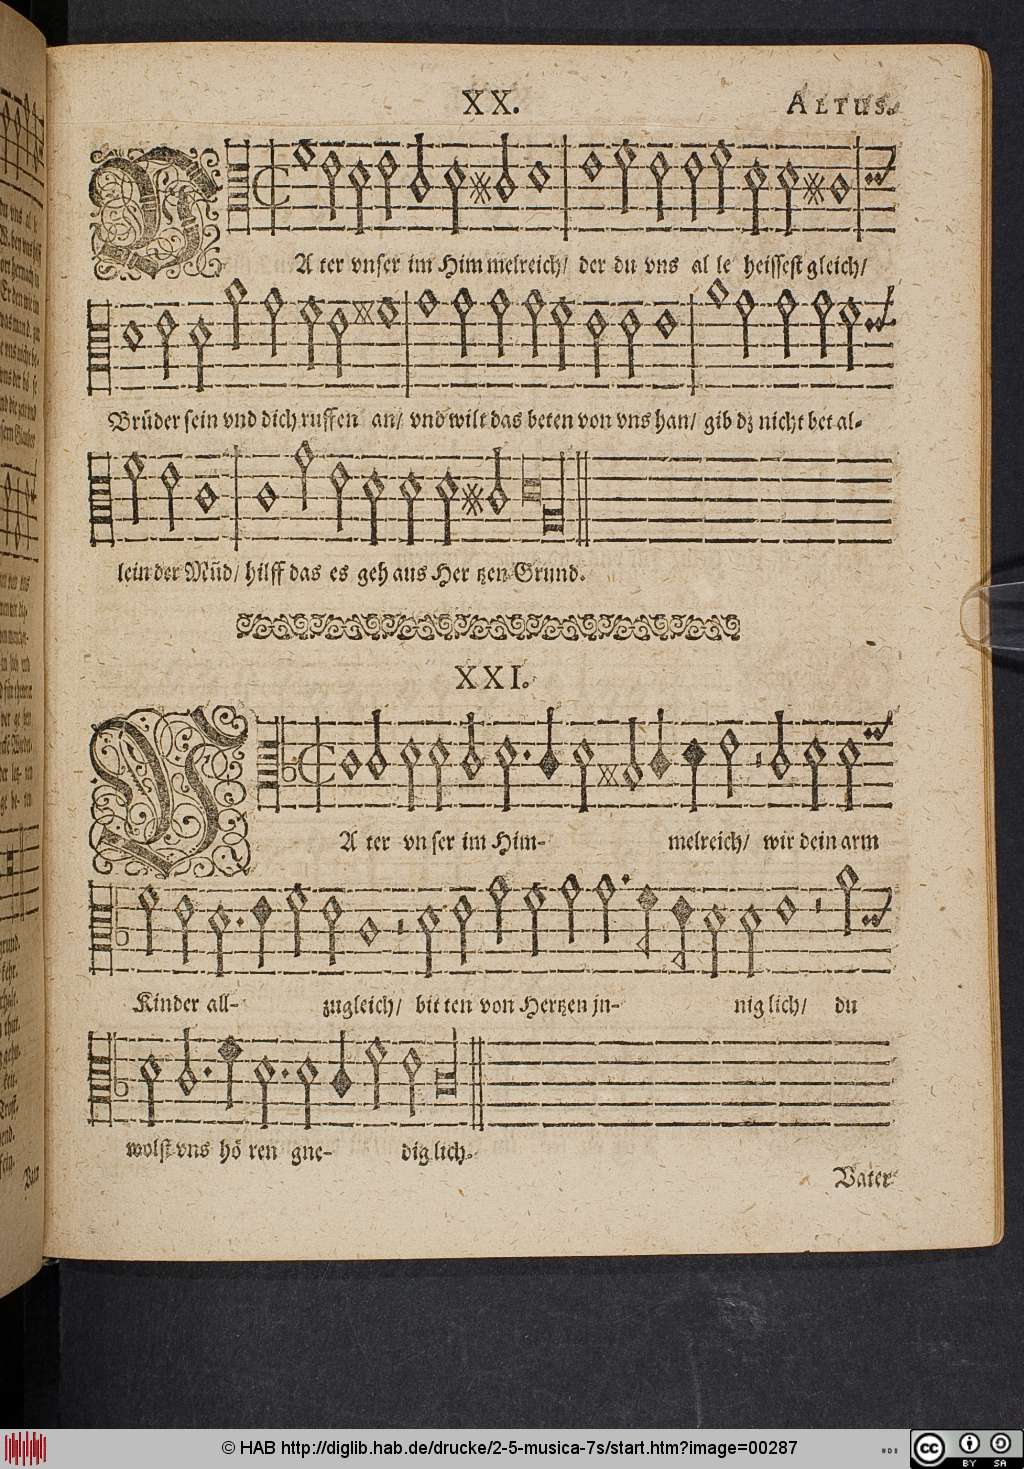 XX.
ALTUS.
VAter vnser im Himmelreich/ der du vns alle heissest gleich/
Brüder sein vnd dich ruffen an/ vnd wilt das beten von vns han/ gib dz nicht bet al-
lein der Mūd/ hilff das es geh aus Hertzen Grund.
XXI.
VAter vnser im Him- melreich/ wir dein arm
Kinder all- zugleich/ bitten von Hertzen jn- niglich/ du
wolst vns hören gne- diglich.
Vater
© HAB http://diglib.hab.de/drucke/2-5-musica-7s/start.htm?image=00287
cc BY SA